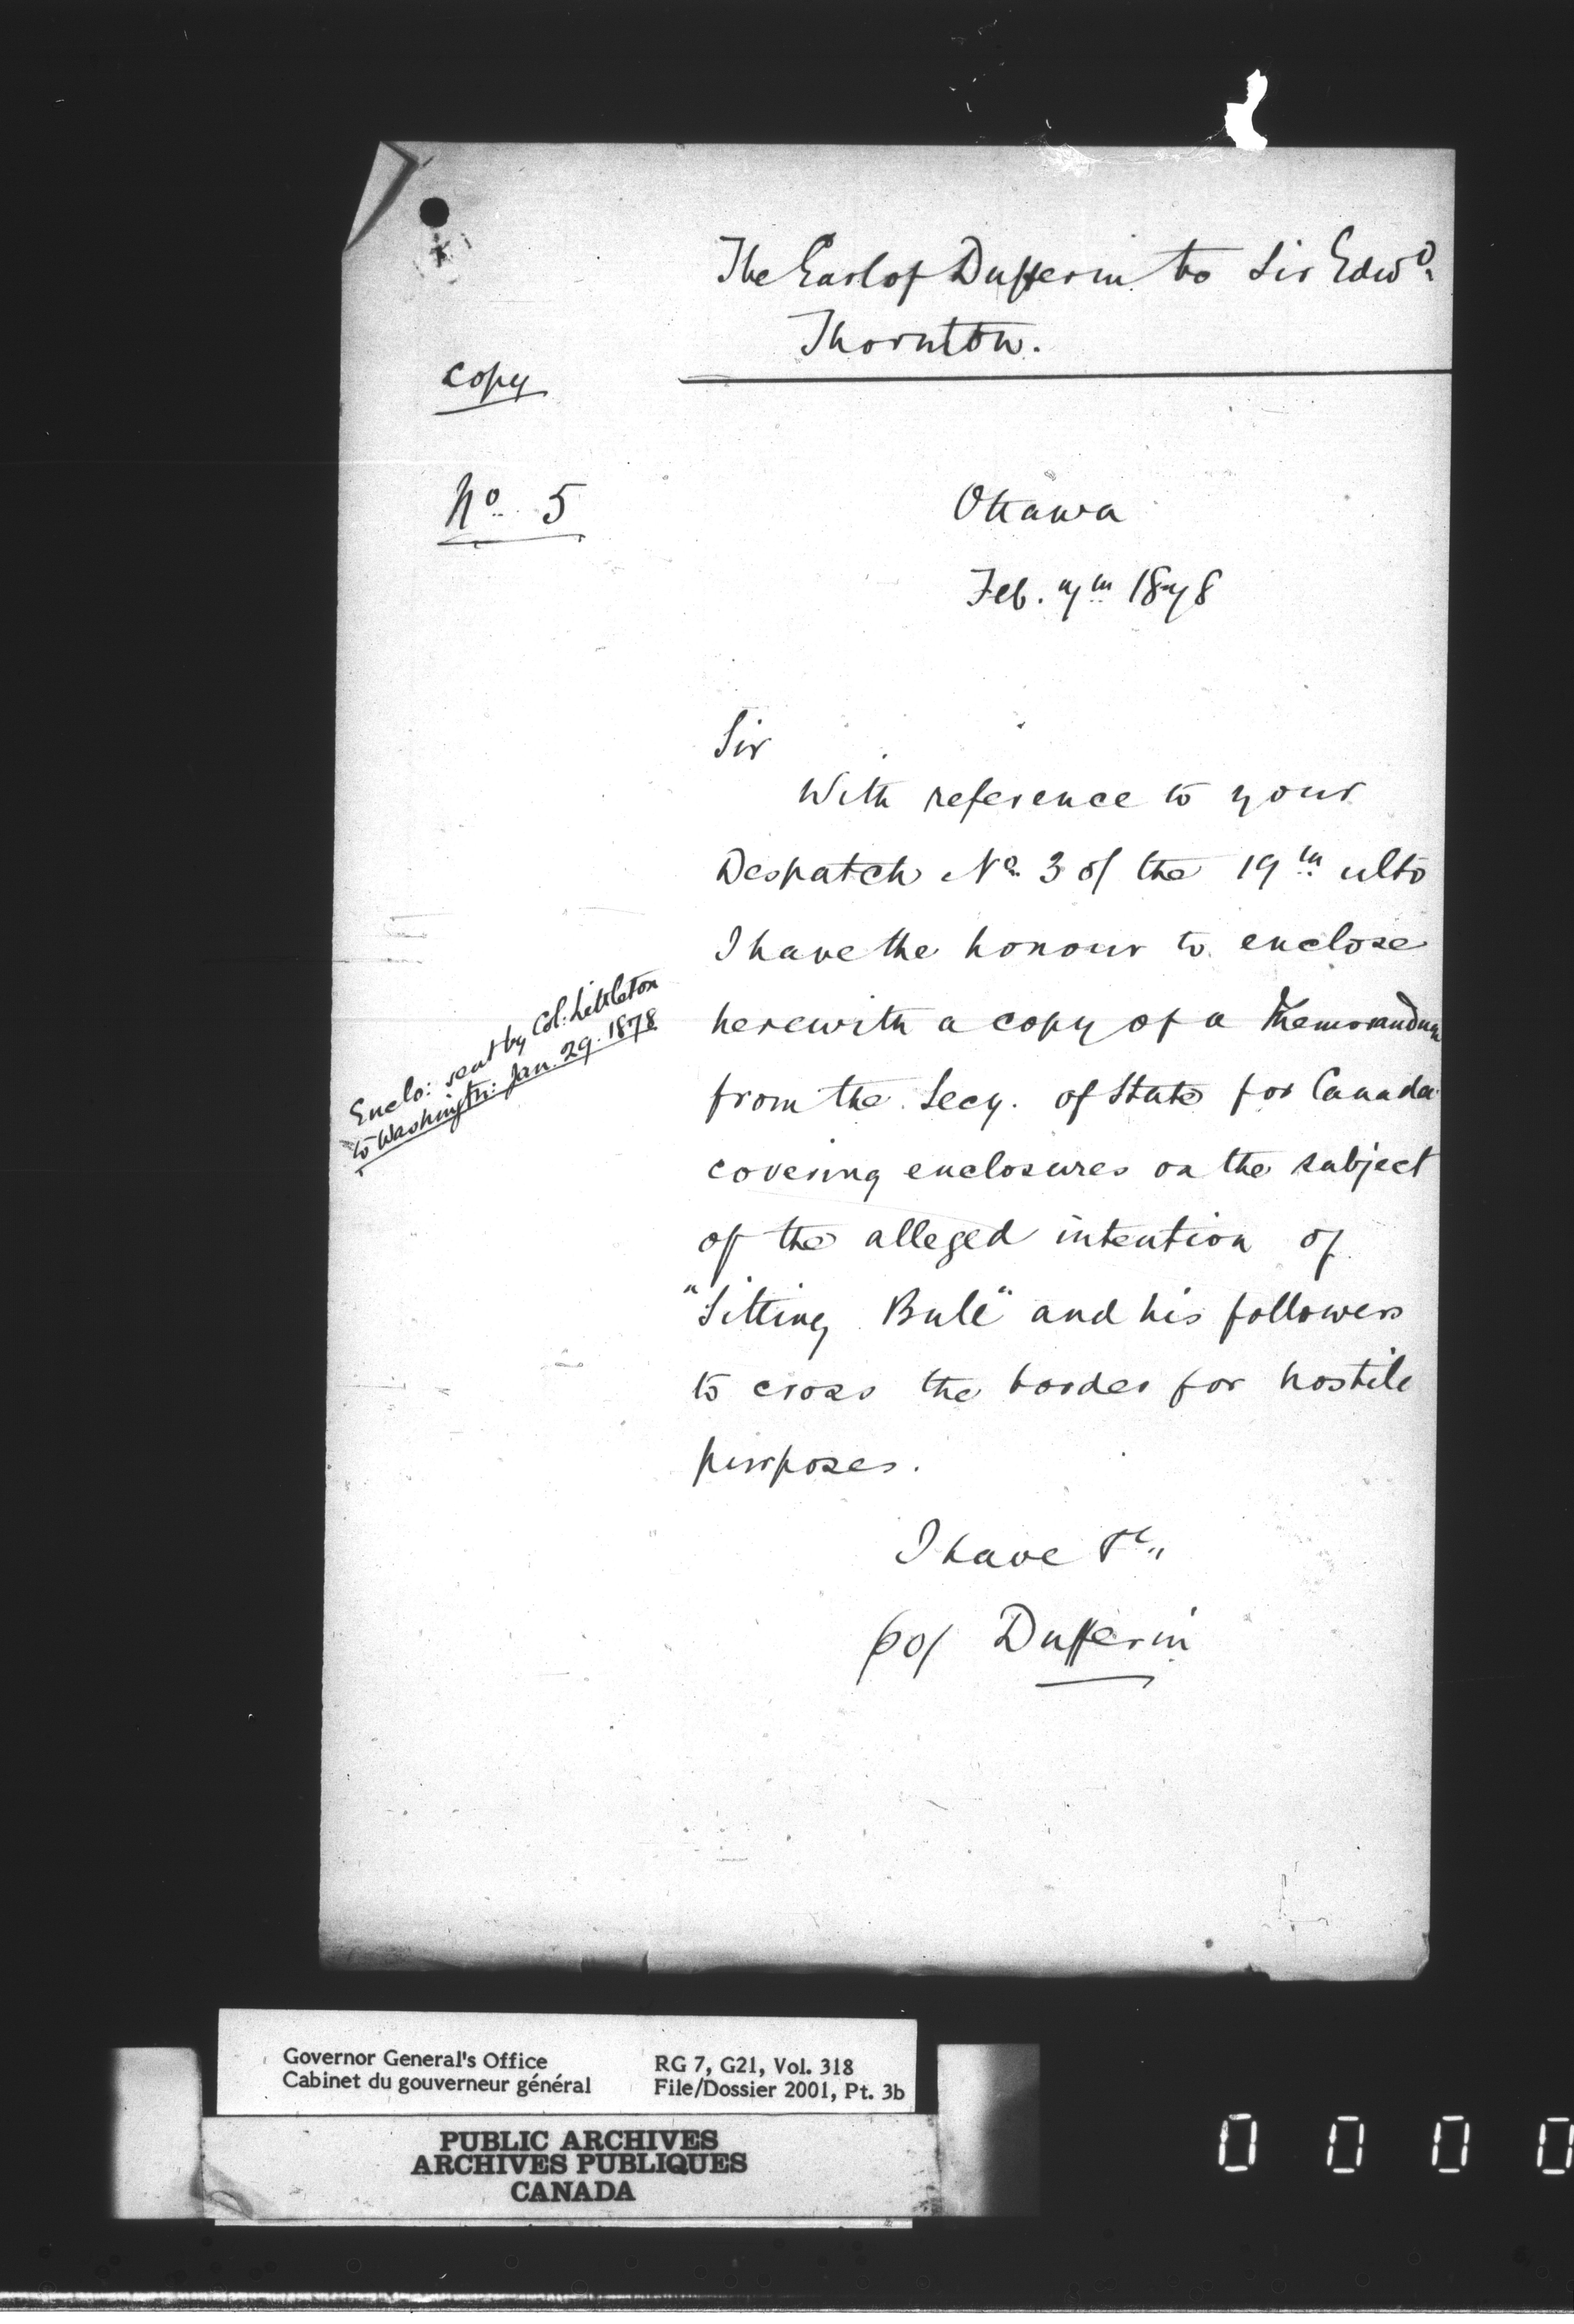 The Earl of Dufferin to Sir Edwd.
Thornton.
Copy
No. 5
Ottawa
Feb. 7th 1878
Sir
With reference to your
Despatch No. 3 of the 19th ulto
I have the honour to enclose
herewith a copy of a Memorandum
from the Secy. of State for Canada
covering enclosures on the subject
of the alleged intention of
"Sitting Bull" and his followers
to cross the border for hostile
purposes.
I have &c,,
Dufferin
Enclo: sent by Col: Littleton
to Washingtn: Jan. 29. 1878
Governor General's Office
Cabinet du gouverneur général
RG 7, G21, Vol. 318
File/Dossier 2001, Pt. 3b
PUBLIC ARCHIVES
ARCHIVES PUBLIQUES
CANADA
0 0 0 0